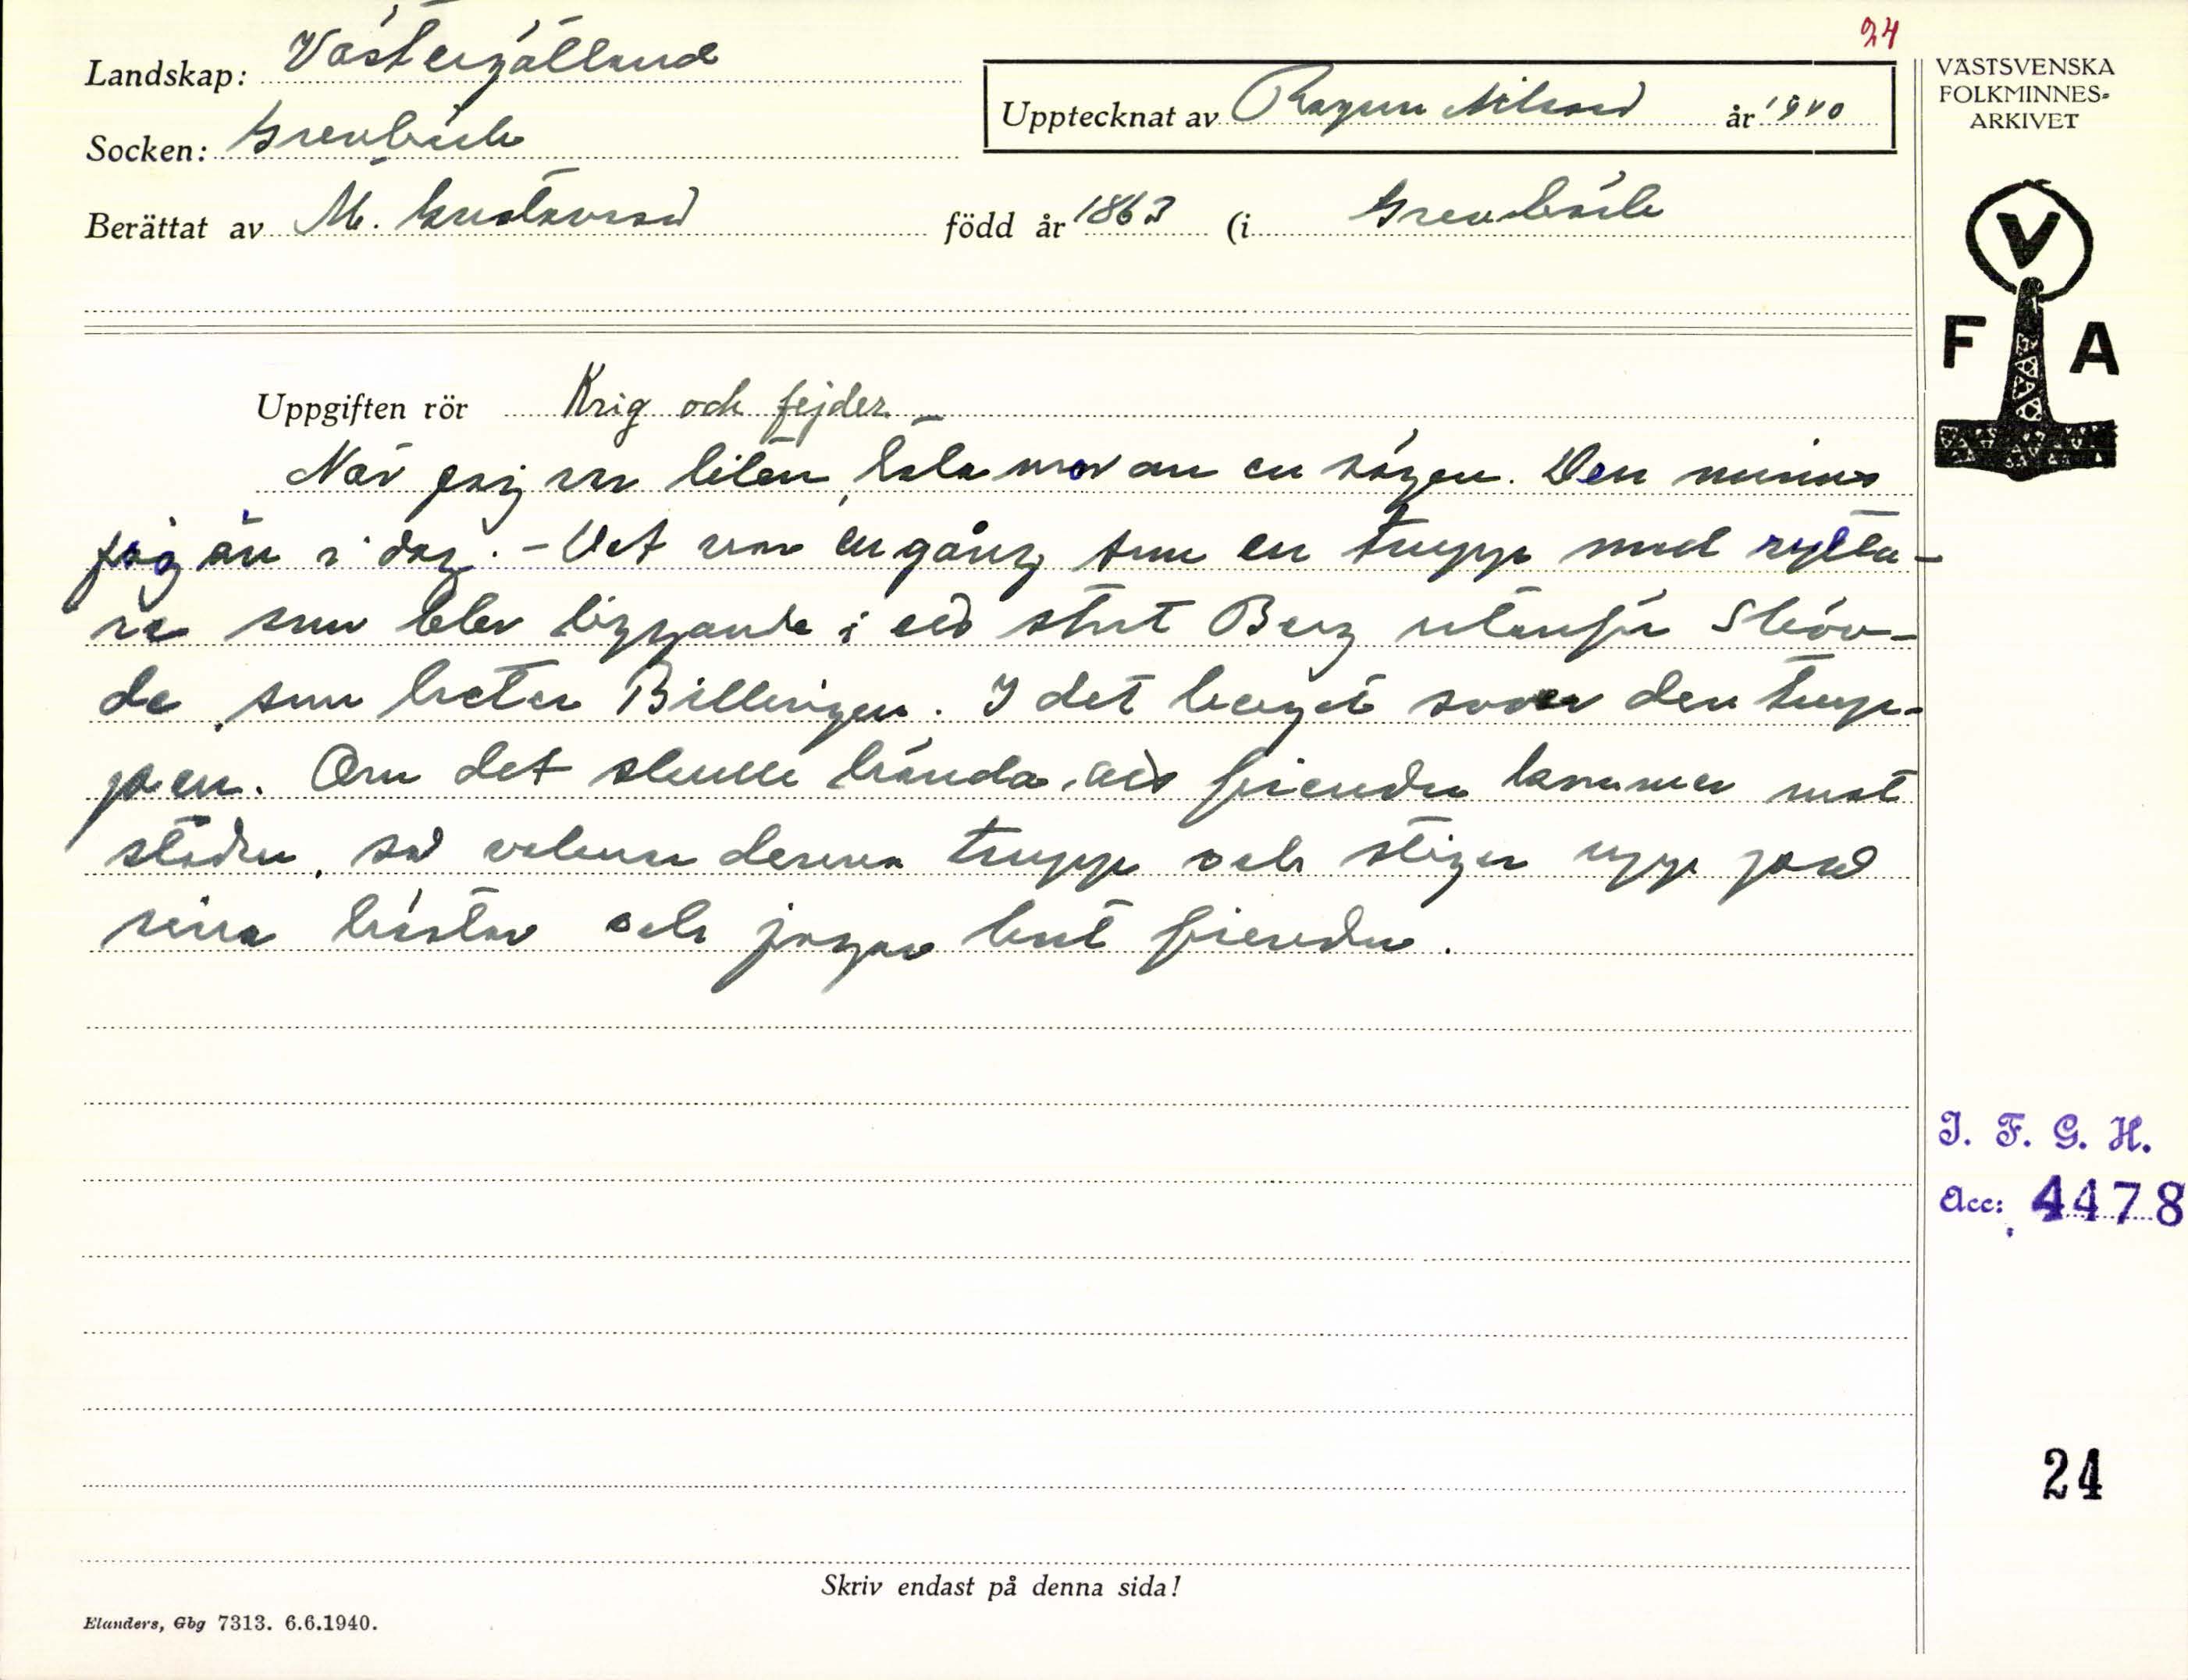 24
Landskap: Västergötland
Upptecknat av Ragnar Nilsson år 1940
VÄSTSVENSKA
FOLKMINNES-
ARKIVET
Socken: Grevbäck
Berättat av M. Gustavsson född år 1863 (i Grevbäck
V
F A
Uppgiften rör Krig och fejder
När jag var liten, tala mor om en sägen. Den minns
jag än i dag. - Det var en gång som en trupp med rytta-
re som blev liggande i ett stort Berg utanför Sköv-
de, som heter Billingen. I det berget sover den trup-
pen. Om det skulle hända, att fienden kommer mot
staden, så vaknar denna trupp och stiger upp på
sina hästar och jagar bort fienden.
I. F. G. H.
Acc: 4478
24
Skriv endast på denna sida!
Elanders, Gbg 7313. 6.6.1940.